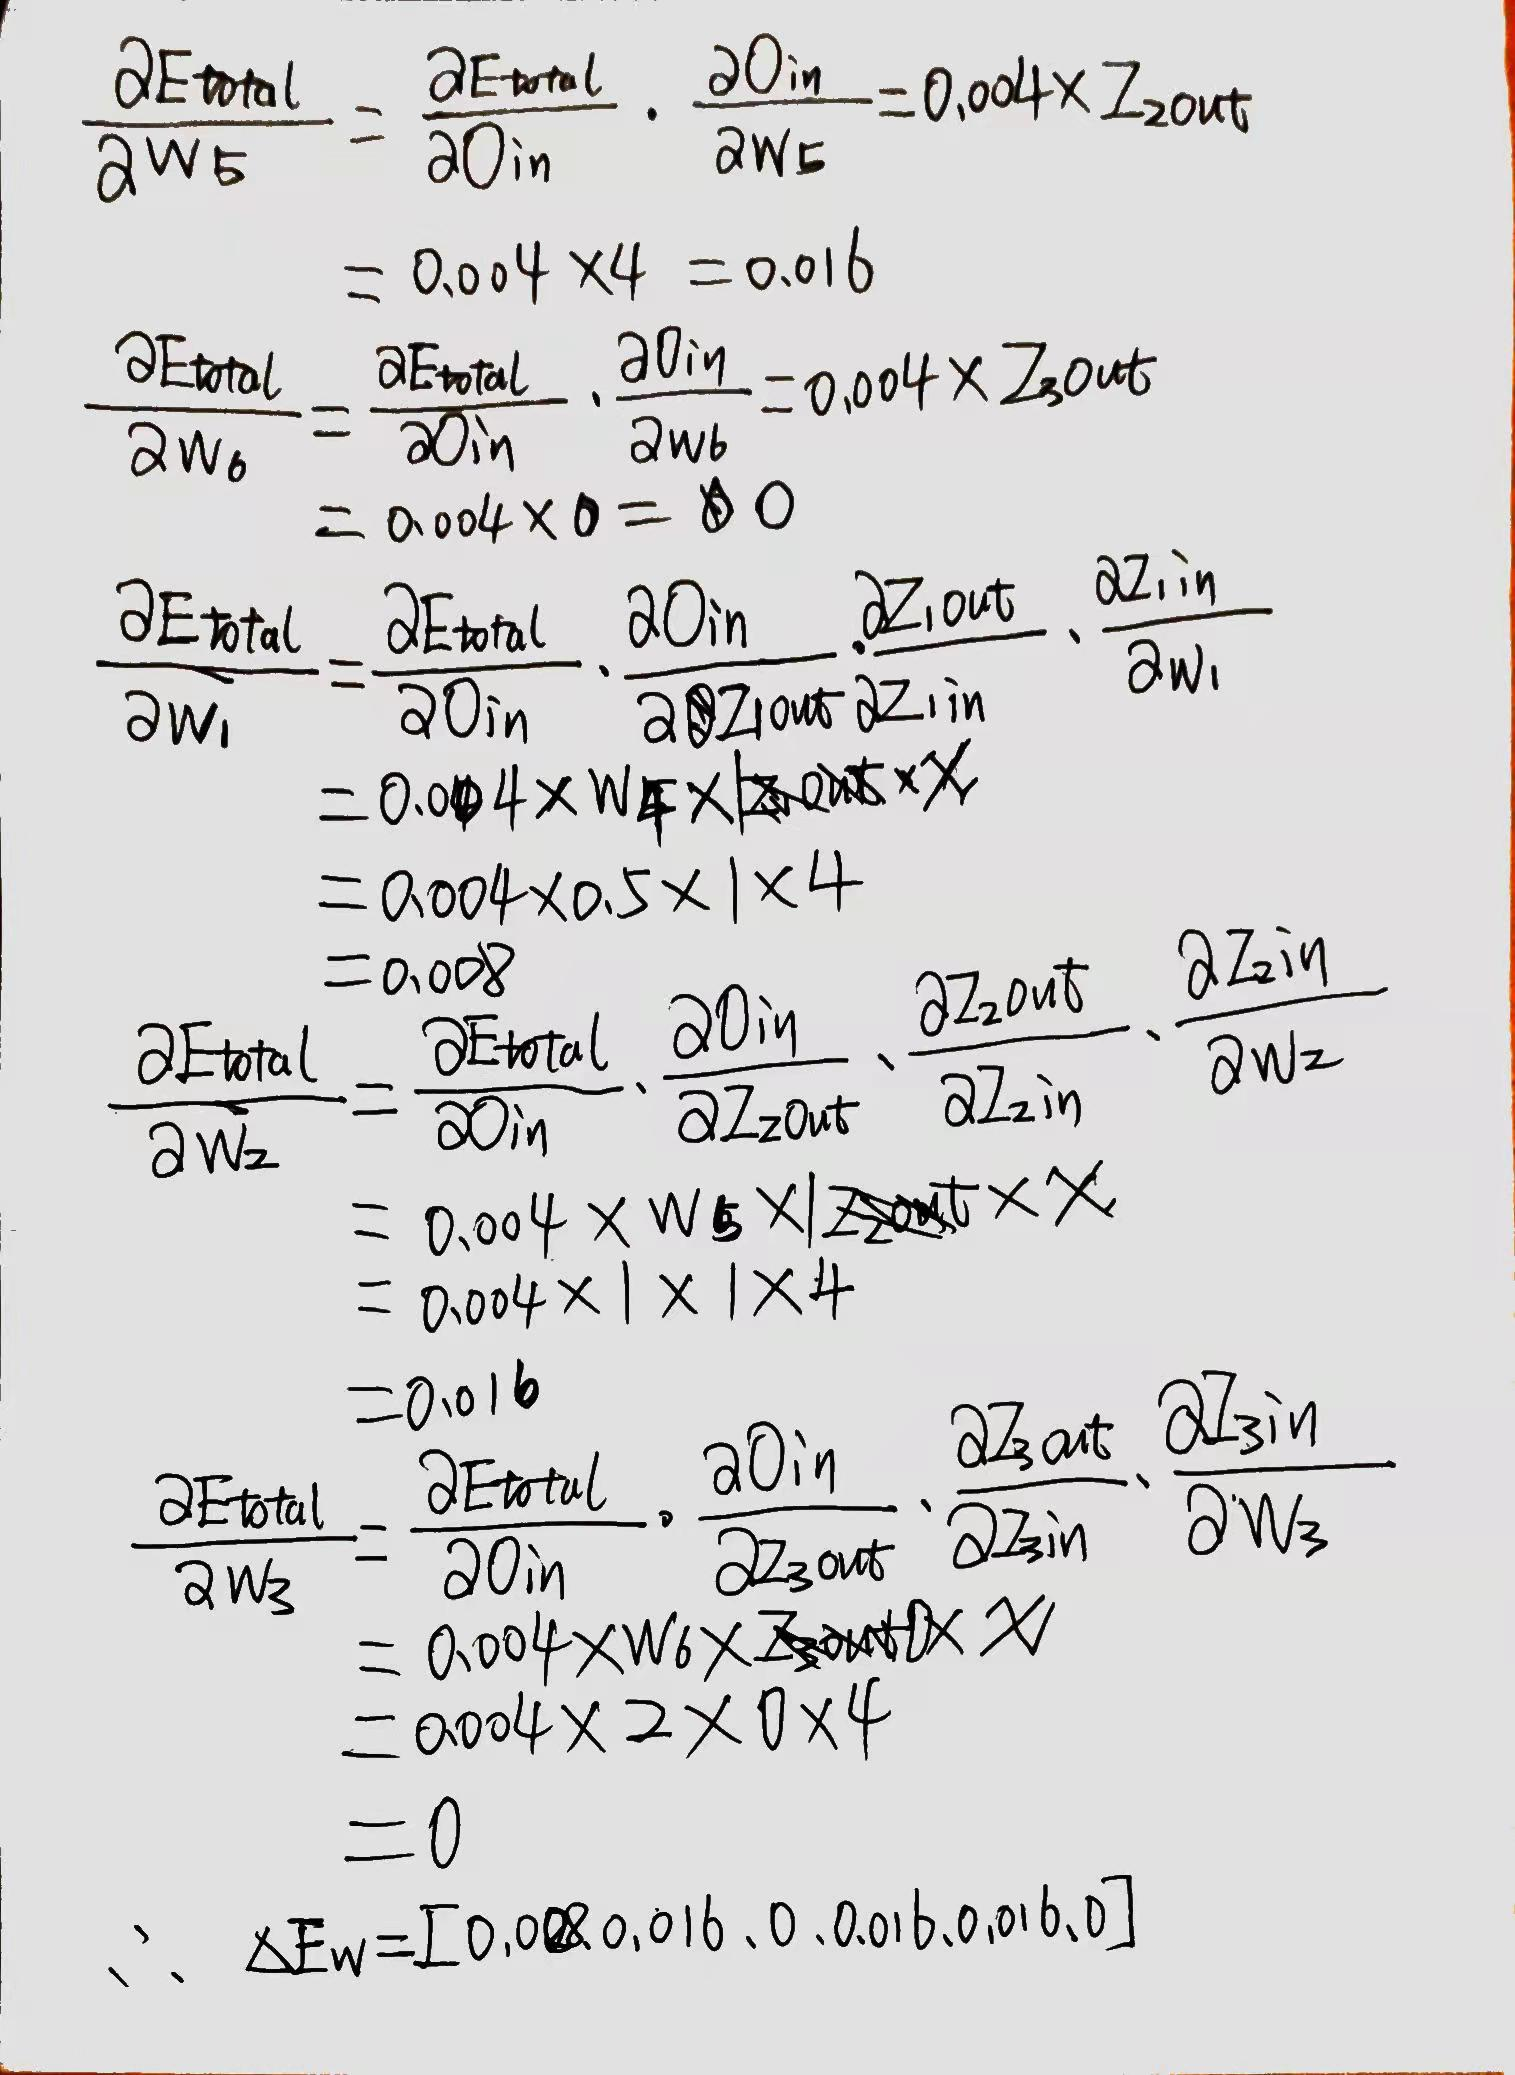 ∂Etotal/∂W5 = ∂Etotal/∂Oin · ∂Oin/∂W5 = 0.004 × Z2out
= 0.004 × 4 = 0.016
∂Etotal/∂W6 = ∂Etotal/∂Oin · ∂Oin/∂W6 = 0.004 × Z3out
= 0.004 × 0 = 0
∂Etotal/∂W1 = ∂Etotal/∂Oin · ∂Oin/∂Z1out · ∂Z1out/∂Z1in · ∂Z1in/∂W1
= 0.004 × W4 × 1 × X
= 0.004 × 0.5 × 1 × 4
= 0.008
∂Etotal/∂W2 = ∂Etotal/∂Oin · ∂Oin/∂Z2out · ∂Z2out/∂Z2in · ∂Z2in/∂W2
= 0.004 × W5 × 1 × X
= 0.004 × 1 × 1 × 4
= 0.016
∂Etotal/∂W3 = ∂Etotal/∂Oin · ∂Oin/∂Z3out · ∂Z3out/∂Z3in · ∂Z3in/∂W3
= 0.004 × W6 × 0 × X
= 0.004 × 2 × 0 × 4
= 0
∴ ΔEw = [0.008、0.016、0、0.016、0.016、0]